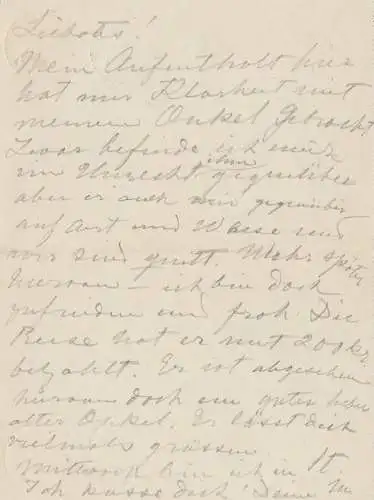 Liebstes!
Mein Aufenthalt hier
hat mir Klarheit mit
meinem Onkel gebracht
Zwar befinde ich mich
im Unrecht ihm gegenüber
aber er auch mir gegenüber
auf Art und Weise und
wir sind quitt. Mehr später
hiervon – ich bin doch
zufrieden und froh. Die
Reise hat er mit 200 kr
bezahlt. Er ist abgesehen
hiervon doch ein guter
alter Onkel. Er lässt dich
vielmals grüssen.
Mittwoch bin ich in St.
Ich küsse dich! Deine M